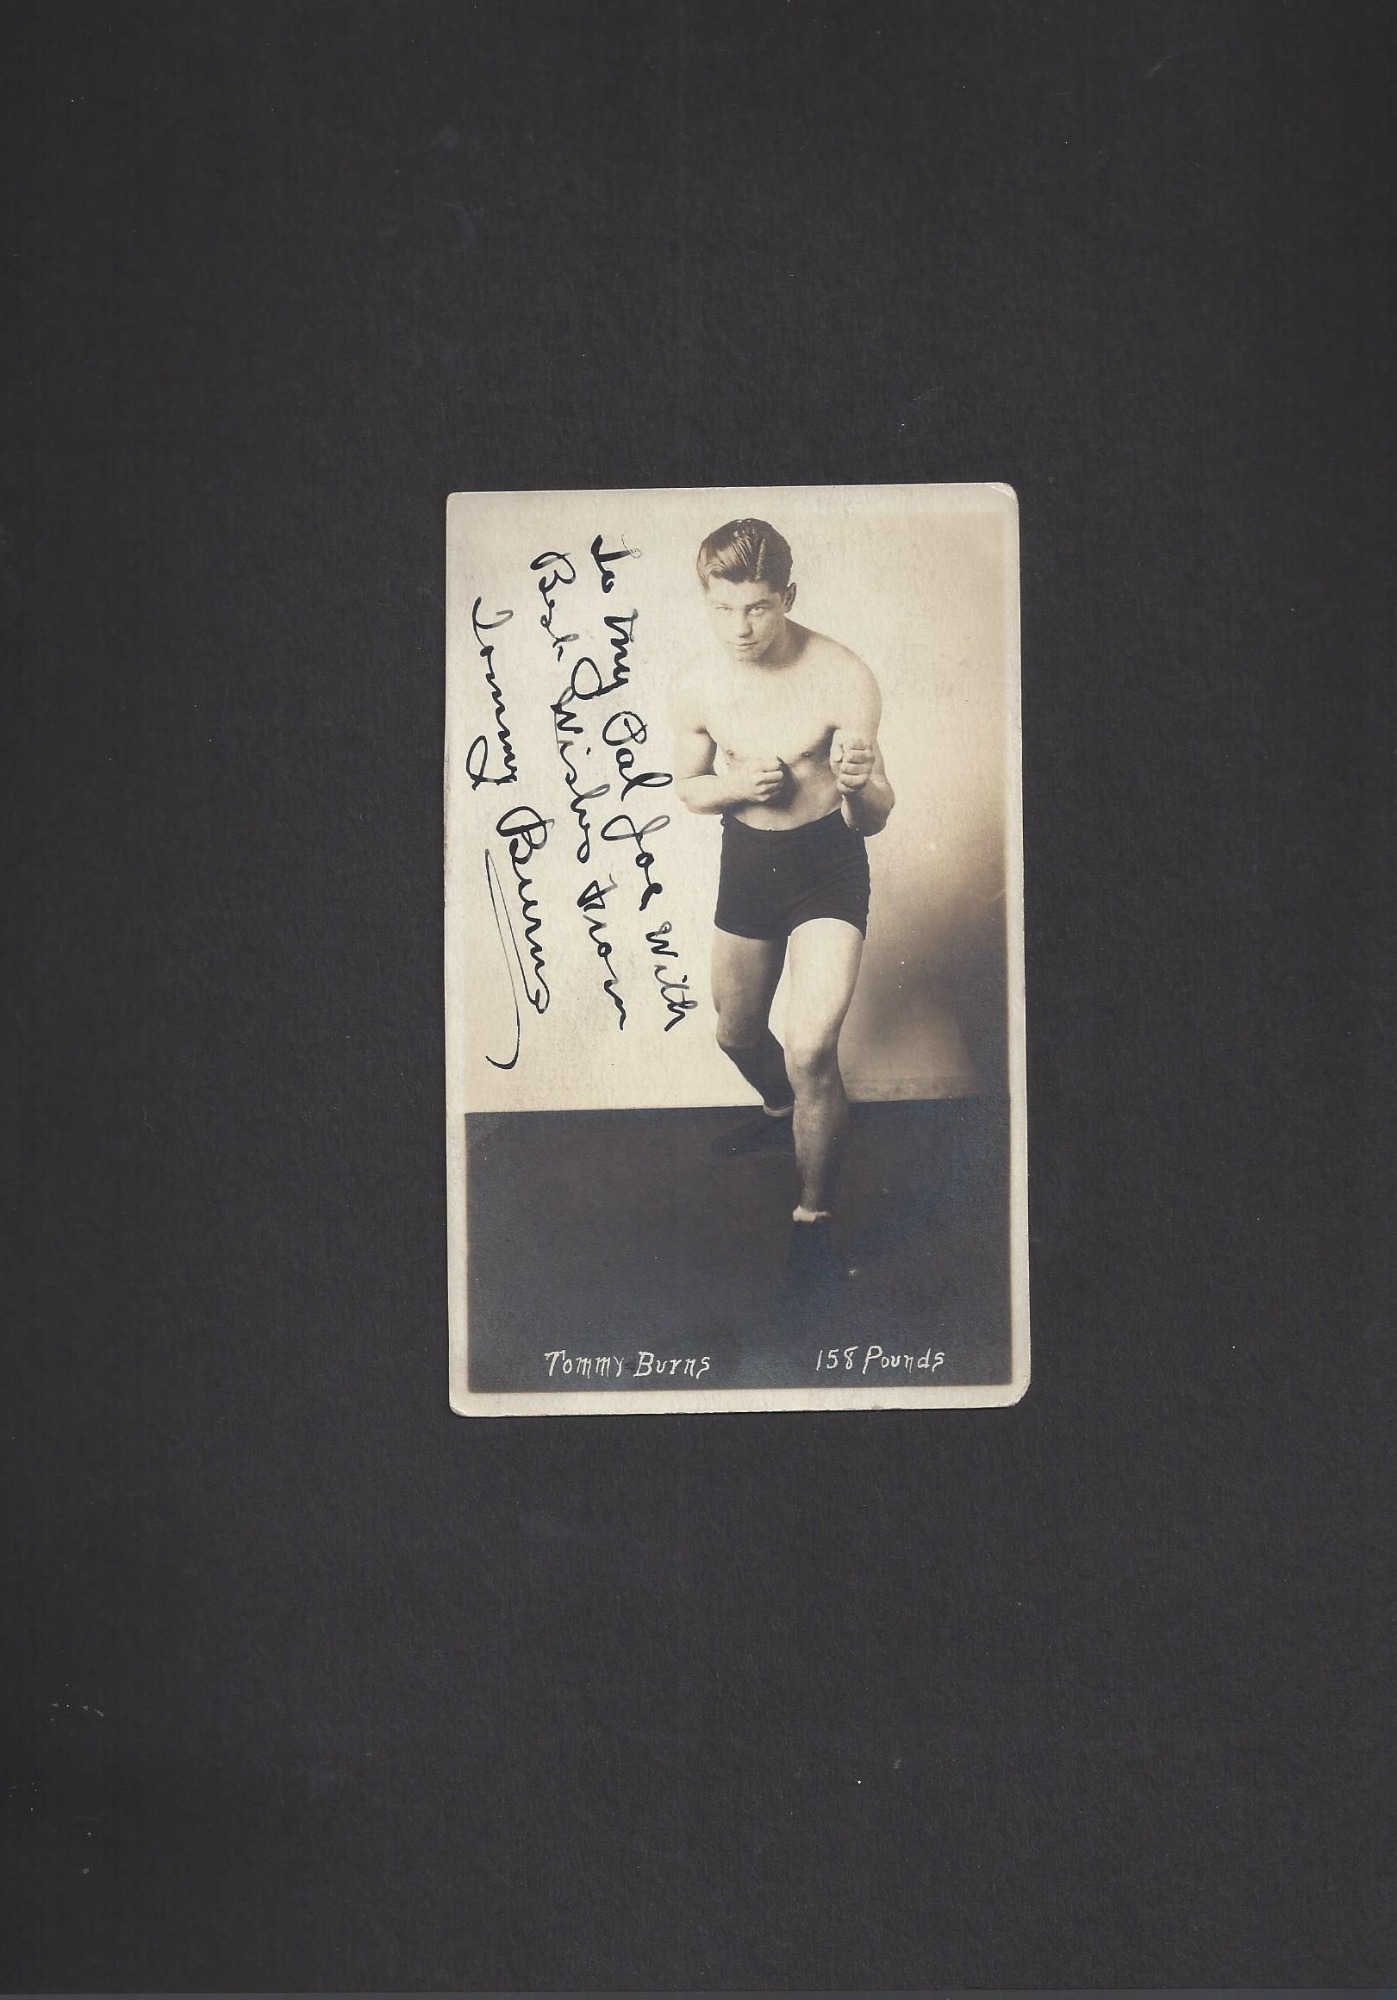 To My Pal Joe With
Best Wishes From
Tommy Burns
Tommy Burns 158 Pounds